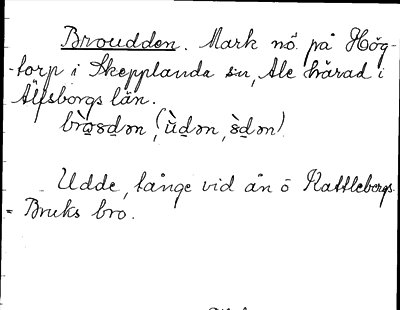 Broudden. Mark nö. på Hög-
-torp i Skepplanda sn, Ale härad i
Älfsborgs län.
Udde, tånge vid ån ö Kattlebergs
= Bruks bro.